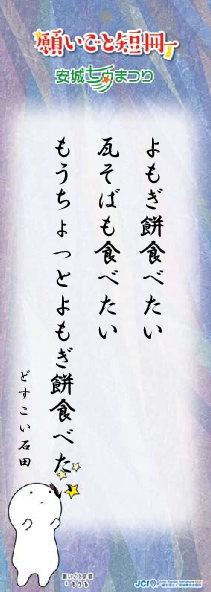 願いごと短冊
安城七夕まつり
よもぎ餅食べたい
瓦そばも食べたい
もうちょっとよもぎ餅食べた
どすこい石田
JCI